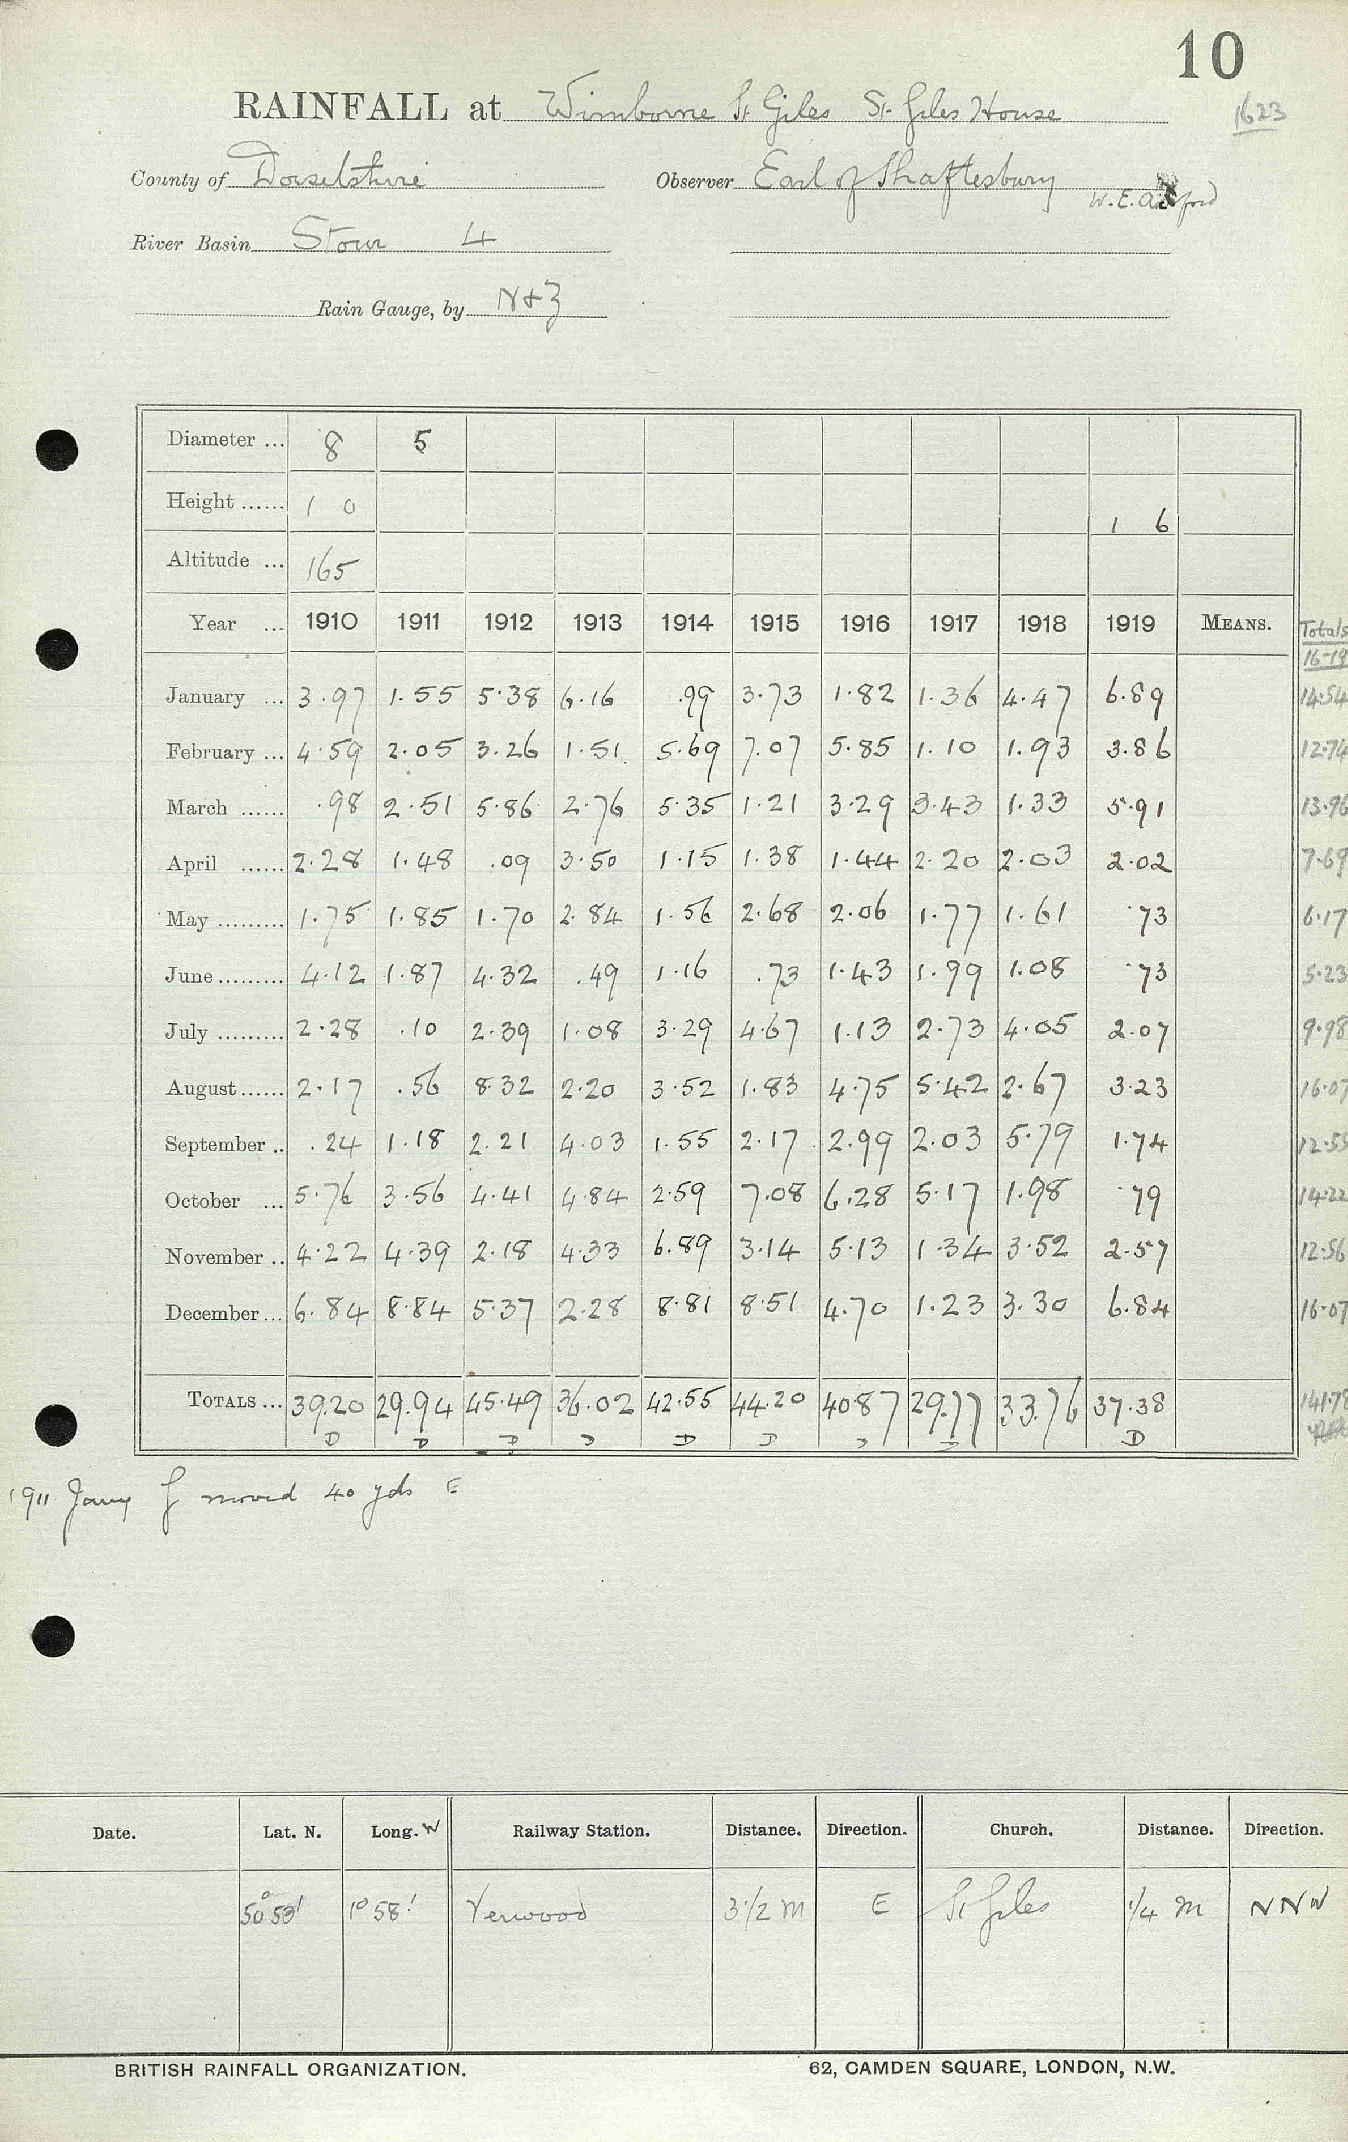 10
RAINFALL at Wimborne St Giles St. Giles House 1623
County of Dorsetshire Observer Earl of Shaftesbury
W. E.
River Basin Stour 4
Rain Gauge, by N & Z
Diameter ... 8 5
Height ...... 1 0 1 6
Altitude ... 165
Year ... 1910 1911 1912 1913 1914 1915 1916 1917 1918 1919 MEANS. Totals
16-19
January ... 3.97 1.55 5.38 6.16 .99 3.73 1.82 1.36 4.47 6.89 14.54
February ... 4.59 2.05 3.26 1.51 5.69 7.07 5.85 1.10 1.93 3.86 12.74
March ...... .98 2.51 5.86 2.76 5.35 1.21 3.29 3.43 1.33 5.91 13.96
April ...... 2.28 1.48 .09 3.50 1.15 1.38 1.44 2.20 2.03 2.02 7.69
May ......... 1.75 1.85 1.70 2.84 1.56 2.68 2.06 1.77 1.61 .73 6.17
June ......... 4.12 1.87 4.32 .49 1.16 .73 1.43 1.99 1.08 .73 5.23
July ......... 2.28 .10 2.39 1.08 3.29 4.67 1.13 2.73 4.05 2.07 9.98
August ...... 2.17 .56 8.32 2.20 3.52 1.83 4.75 5.42 2.67 3.23 16.07
September .. .24 1.18 2.21 4.03 1.55 2.17 2.99 2.03 5.79 1.74 12.55
October ... 5.76 3.56 4.41 4.84 2.59 7.08 6.28 5.17 1.98 .79 14.22
November .. 4.22 4.39 2.18 4.33 6.89 3.14 5.13 1.34 3.52 2.57 12.56
December ... 6.84 8.84 5.37 2.28 8.81 8.51 4.70 1.23 3.30 6.84 16.07
TOTALS ... 39.20 29.94 45.49 36.02 42.55 44.20 40.87 29.77 33.76 37.38 141.78
D D D D D D D D D
1911 Jany G moved 40 yds E
Date. Lat. N. Long. W Railway Station. Distance. Direction. Church. Distance. Direction.
50° 53' 1° 58' Verwood 3 1/2 m E St Giles 1/4 m NNW
BRITISH RAINFALL ORGANIZATION. 62, CAMDEN SQUARE, LONDON, N.W.